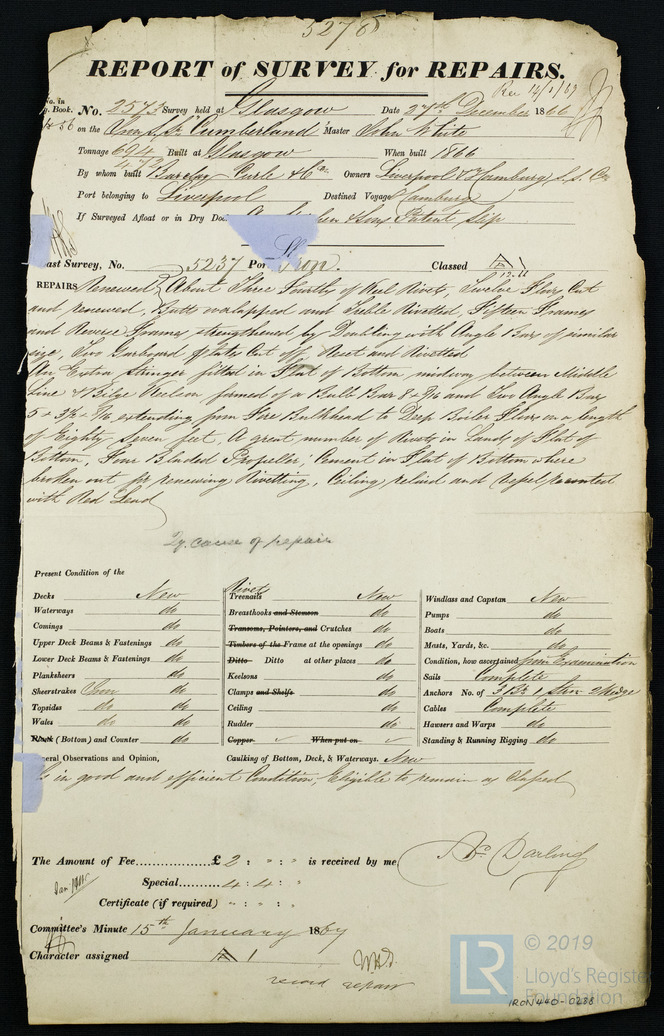 5278
REPORT of SURVEY for REPAIRS.
Rec 14/1/67
No. in Book. No. 2573 Survey held at Glasgow Date 27th December 1866
on the "Cumberland" Master John White
Tonnage 694 Built at Glasgow When built 1866
473
By whom built Barclay Curle & Co. Owners Liverpool & Hamburg S.S. Co
Port belonging to Liverpool Destined Voyage Hamburg
If Surveyed Afloat or in Dry Patent Slip
Last Survey, No. 5237 Port Iron. Classed A 1
12.66
REPAIRS Renewed About Three Fourths of Keel Rivets, Twelve Floors Cut
and renewed, Butts overlapped and Treble Rivetted, Fifteen Frames
and Reverse Frames strengthened by Doubling with Angle Bars of similar
size, Two Garboard plates Cut off, Reset and Rivetted
An Extra Stringer fitted in Flat of Bottom, midway between Middle
Line & Bilge Keelson formed of a Bulb Bar 8 x 9/16 and Two Angle Bars
5 x 3½ x extending from Fire Bulkhead to Deep Boiler Floors in a length
of Eighty Seven feet, A great number of Rivets in Lands of Flat of
Bottom, Four Bladed Propeller, Cement in Flat of Bottom where
broken out for renewing Rivetting, Ceiling relaid and Vessel recoated
with Red Lead
Qy. cause of repair
Present Condition of the
Decks New
Waterways do
Comings do
Upper Deck Beams & Fastenings do
Lower Deck Beams & Fastenings do
Planksheers do
Sheerstrakes Iron do
Topsides do do
Wales do do
Plank (Bottom) and Counter do
Rivets
Treenails New
Breasthooks and Stemson do
Transoms, Pointers, and Crutches do
Timbers of the Frame at the openings do
Ditto Ditto at other places do
Keelsons do
Clamps and Shelfs do
Ceiling do
Rudder do
Copper When put on
Windlass and Capstan New
Pumps do
Boats do
Masts, Yards, &c. do
Condition, how ascertained from Examination
Sails Complete
Anchors No. of 3 Br 1 Strm 2 Kedge
Cables Complete
Hawsers and Warps do
Standing & Running Rigging do
General Observations and Opinion, Caulking of Bottom, Deck, & Waterways. New
Is in good and efficient Condition, Eligible to remain as Classed
The Amount of Fee............... £ 2 : " : " is received by me, Darling
Special......... 4 : 4 : "
Certificate (if required) " : " : "
Committee's Minute 15th January 1867
Character assigned A 1
record repair
© 2019
LR Lloyd's Register
Foundation
IRON440-0288